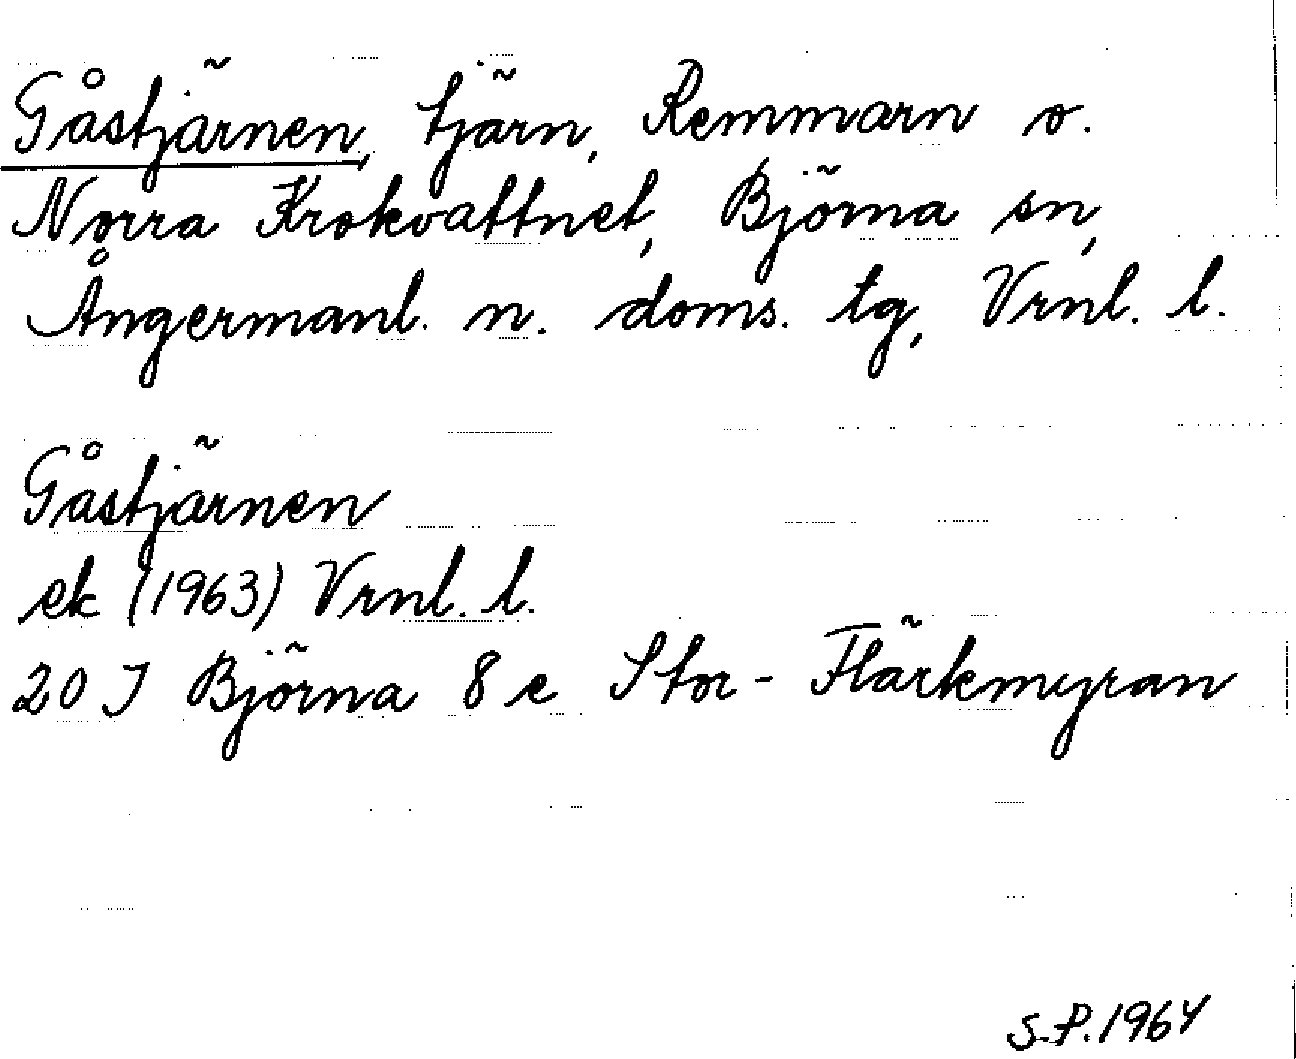 Gåstjärnen, tjärn, Remmarn o.
Norra Krokvattnet, Björna sn,
Ångermanl. n. doms. tg, Vrnl. l.
Gåstjärnen
ek (1963) Vrnl. l.
20 J Björna 8 e Stor-Flärkmyran
S.P. 1964